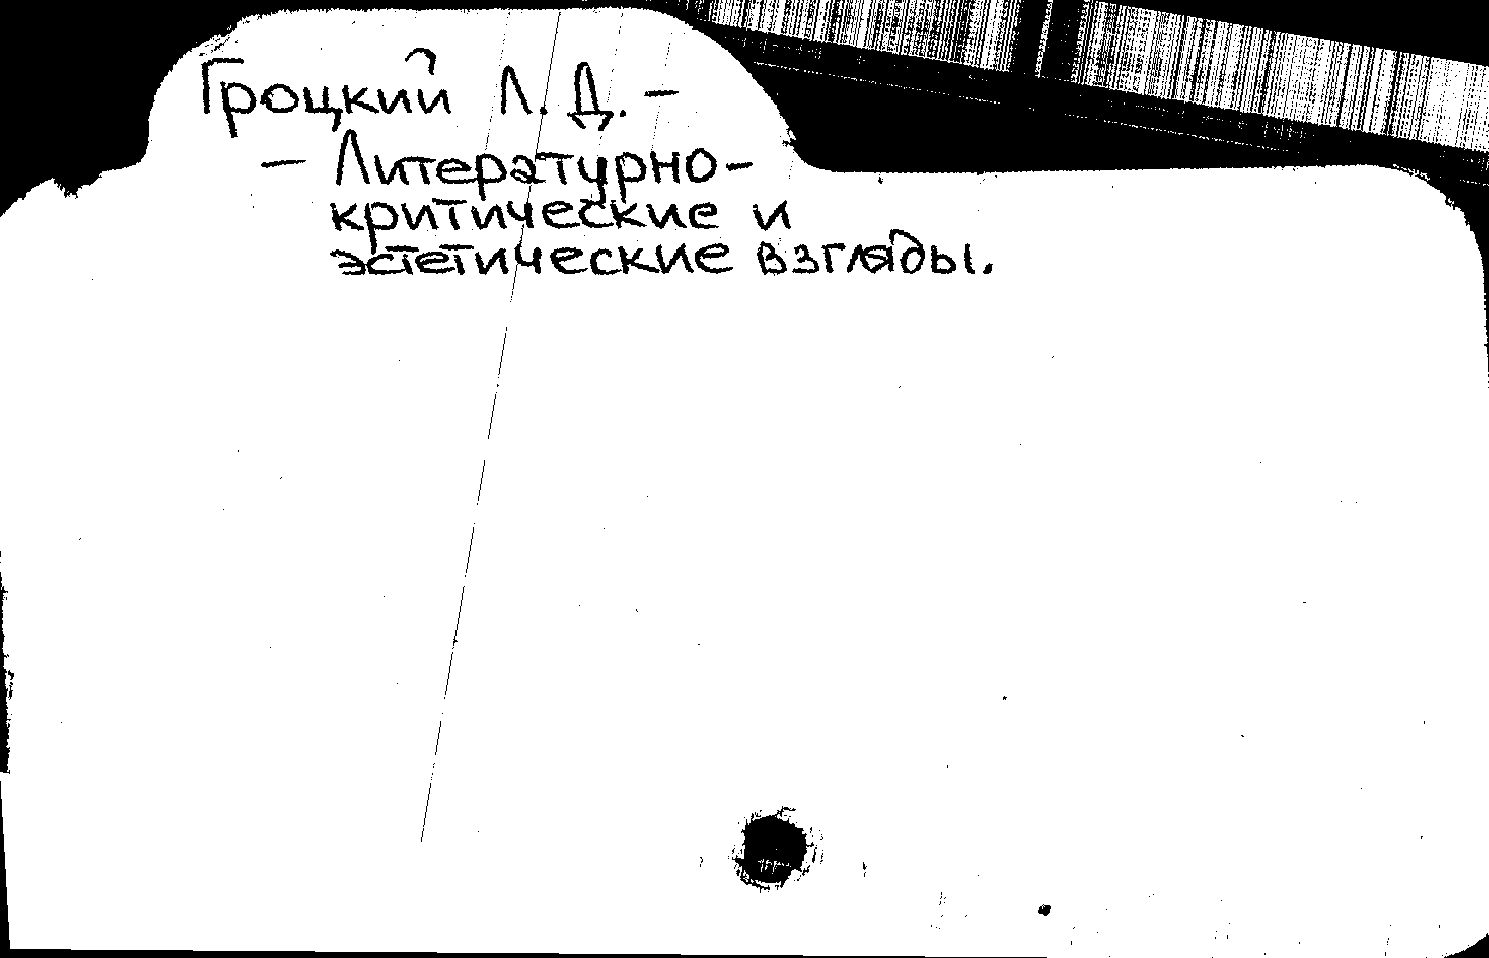 Троцкий Л. Д. –
– Литературно-
критические и
эстетические взгляды.